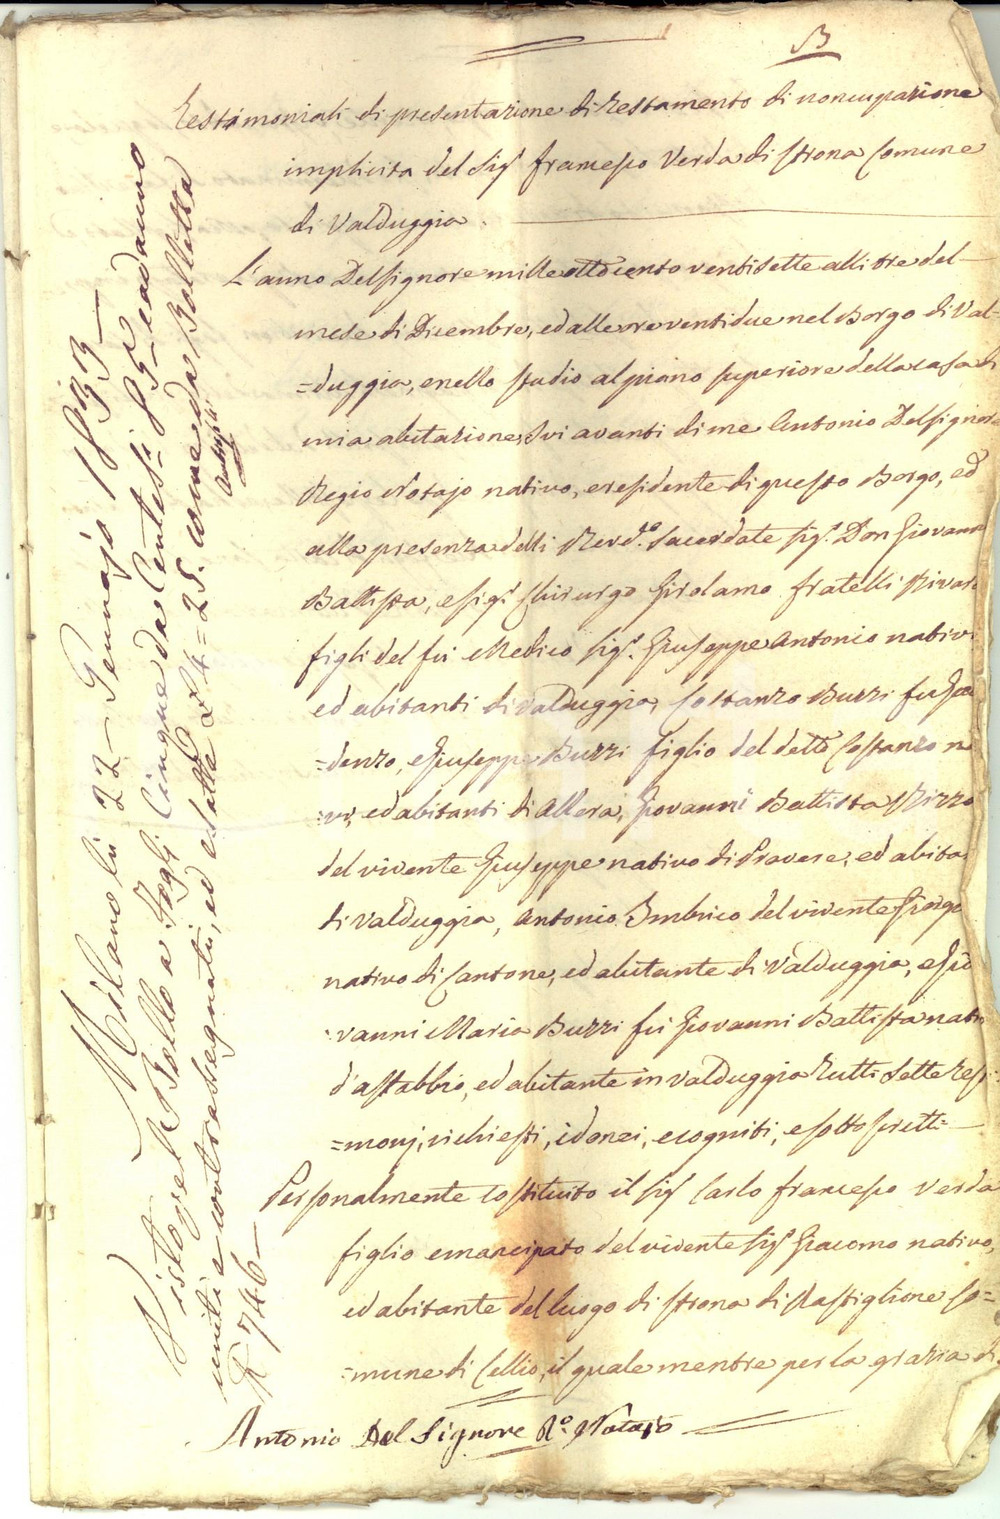 B
Testimoniali di presentazione di Testamento di noncupazione
implicita del Sigr. Francesco Verda di Strona Comune
di Valduggia.
L'anno Delsignore mille ottocento ventisette alli tre del
mese di Dicembre, ed alle ore ventidue nel Borgo di Val=
=duggia, e nello studio al piano superiore della casa di
mia abitazione, Ivi avanti di me Antonio Delsignore
Regio Notajo nativo, e residente di questo Borgo, ed
alla presenza delli Revd.o Sacerdote Sig.r Don Giovanni
Battista, e Sig.r Chirurgo Girolamo fratelli Rivar
figli del fu Medico Sig.r Giuseppe Antonio nativi
ed abitanti di Valduggia, Costanzo Buzzi fu Gau
=denzo, e Giuseppe Buzzi figlio del detto Costanzo na
=vi, ed abitanti di Allera, Giovanni Battista Rizzo
del vivente Giuseppe nativo di Pravere, ed abita
di Valduggia, Antonio Imbrico del vivente Giorgo
nativo di Cantone, ed abitante di Valduggia, e Gio
=vanni Maria Buzzi fu Giovanni Battista nativo
d'Astabbio, ed abitante in Valduggia Tutti Sette Testi
=monj, richiesti, idonei, e cogniti, e sottoscritti
Personalmente costituito il Sig.r Carlo Francesco Verda
figlio emancipato del vivente Sig.r Giacomo nativo,
ed abitante del luogo di Strona di Rastiglione Co=
=mune di Cellio, il quale mentre per la grazia di
Antonio Del Signore R.o Notajo
Milano li 22 Gennajo 18
Visto pel Bollo a fogli Cinque da Centesi
uniti e contrassegnati, ed esatte L 4=25. come da Bolletta
N 746